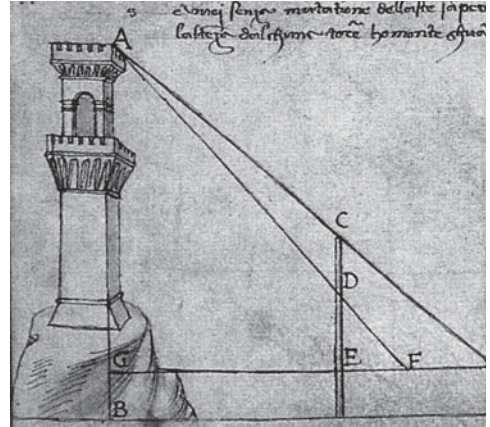 senza mutatione dellaste sape
lalteza dalchune homonte
A
C
D
G E F
B